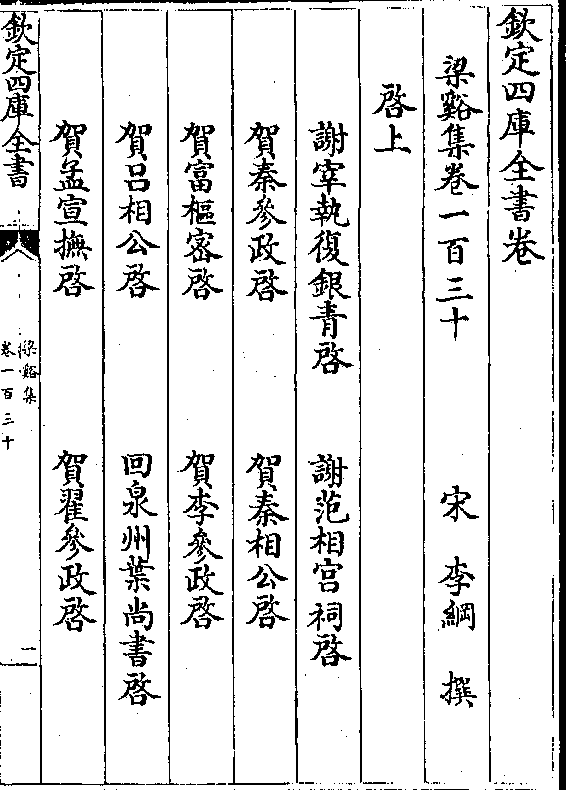 欽定四庫全書卷
梁谿集卷一百三十 宋 李綱 撰
啓上
謝宰執復銀青啓 謝范相宫祠啓
賀秦參政啓 賀秦相公啓
賀富樞密啓 賀李參政啓
賀吕相公啓 回泉州葉尚書啓
賀孟宣撫啓 賀翟參政啓
欽定四庫全書
梁谿集
卷一百三十
一